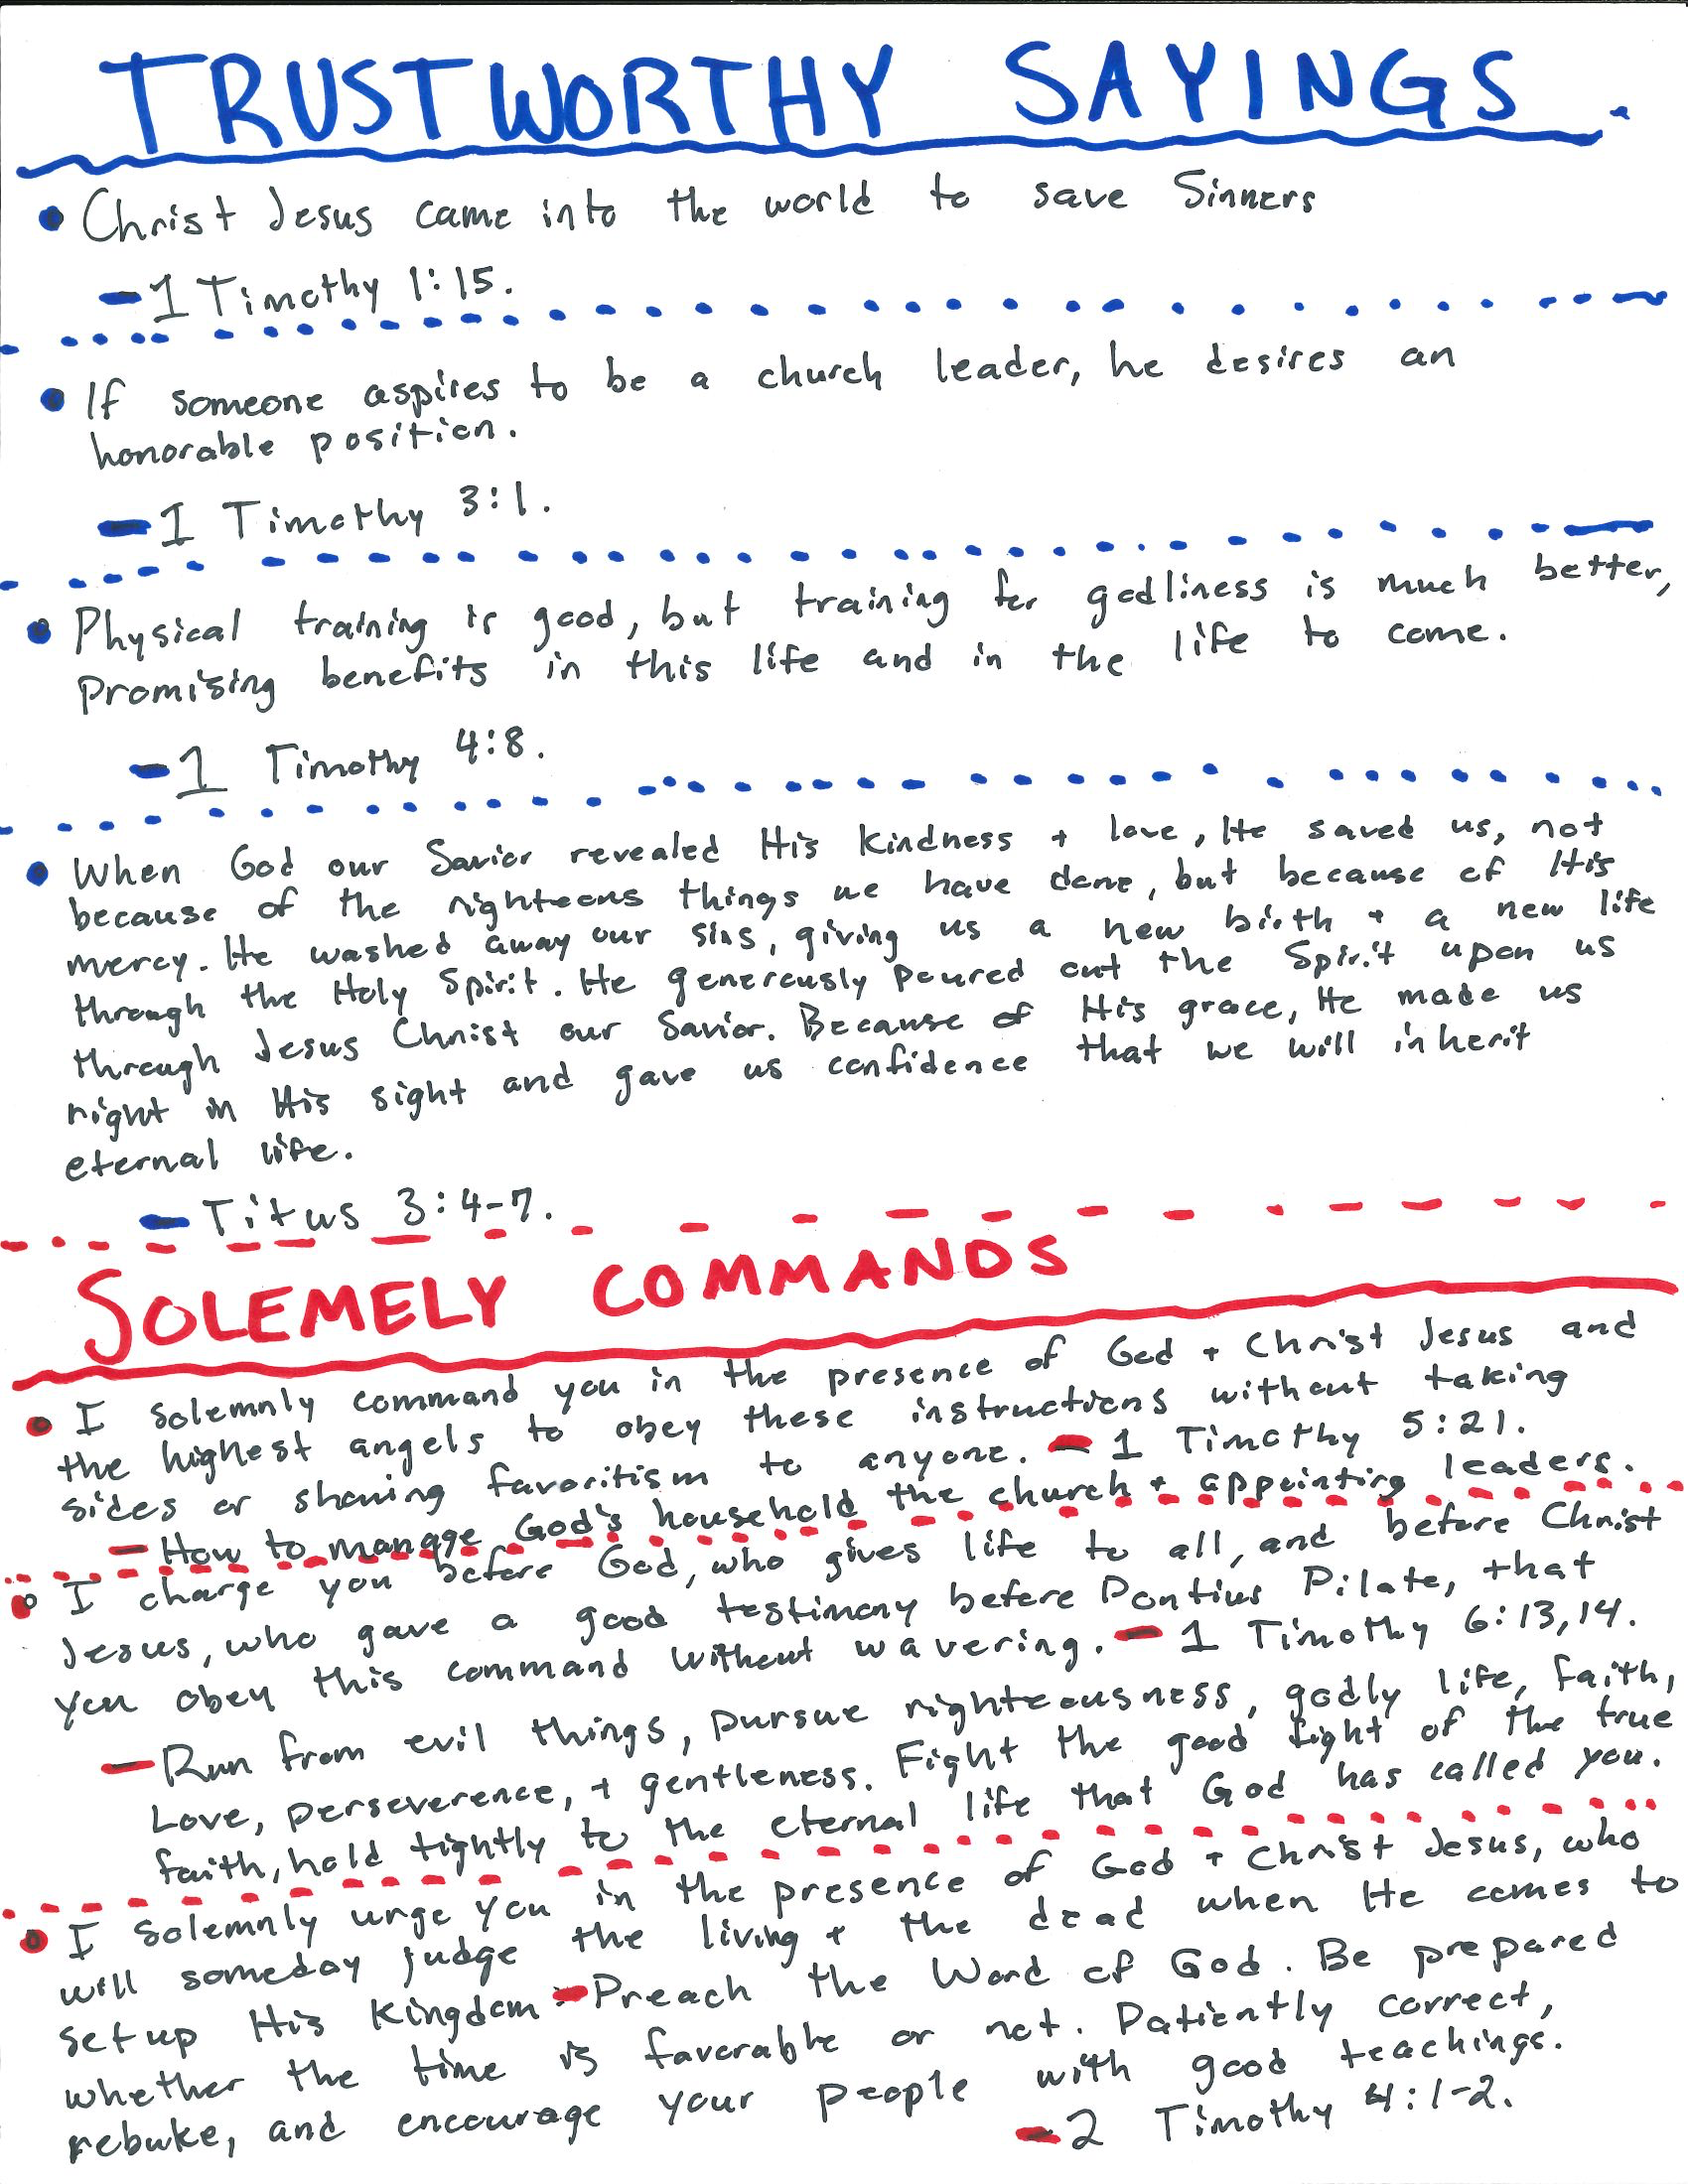 TRUSTWORTHY SAYINGS.
• Christ Jesus came into the world to save Sinners
-1 Timothy 1:15.
• If someone aspires to be a church leader, he desires an
honorable position.
-1 Timothy 3:1.
• Physical training is good, but training for godliness is much better,
Promising benefits in this life and in the life to come.
-1 Timothy 4:8.
• When God our Savior revealed His kindness + love, He saved us, not
because of the righteous things we have done, but because of His
mercy. He washed away our sins, giving us a new birth + a new life
through the Holy Spirit. He generously poured out the Spirit upon us
through Jesus Christ our Savior. Because of His grace, He made us
right in His sight and gave us confidence that we will inherit
eternal life.
-Titus 3:4-7.
SOLEMELY COMMANDS
• I solemnly command you in the presence of God + Christ Jesus and
the highest angels to obey these instructions without taking
sides or showing favoritism to anyone. -1 Timothy 5:21.
-How to manage God's household the church + appointing leaders.
• I charge you before God, who gives life to all, and before Christ
Jesus, who gave a good testimony before Pontius Pilate, that
you obey this command without wavering. -1 Timothy 6:13,14.
-Run from evil things, pursue righteousness, godly life, faith,
Love, perseverence, + gentleness. Fight the good fight of the true
faith, hold tightly to the eternal life that God has called you.
• I solemnly urge you in the presence of God + Christ Jesus, who
will someday judge the living + the dead when He comes to
set up His Kingdom -Preach the Word of God. Be prepared
whether the time is favorable or not. Patiently correct,
rebuke, and encourage your people with good teachings.
-2 Timothy 4:1-2.